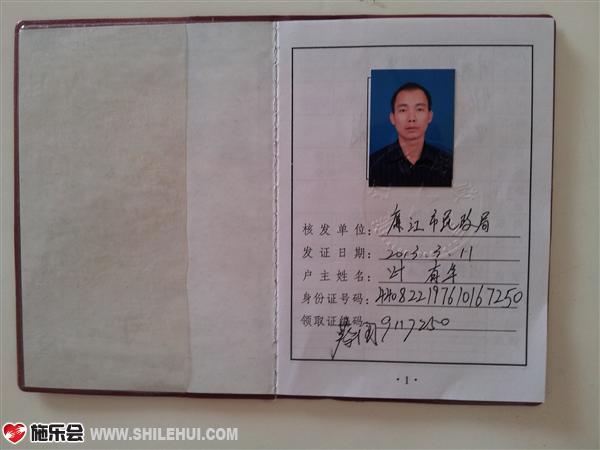 核发单位：廉江市民政局
发证日期：2013.3.11
户主姓名：叶 有年
身份证号码：440822197610167250
领取证编码：9117250
·1·
施乐会 WWW.SHILEHUI.COM